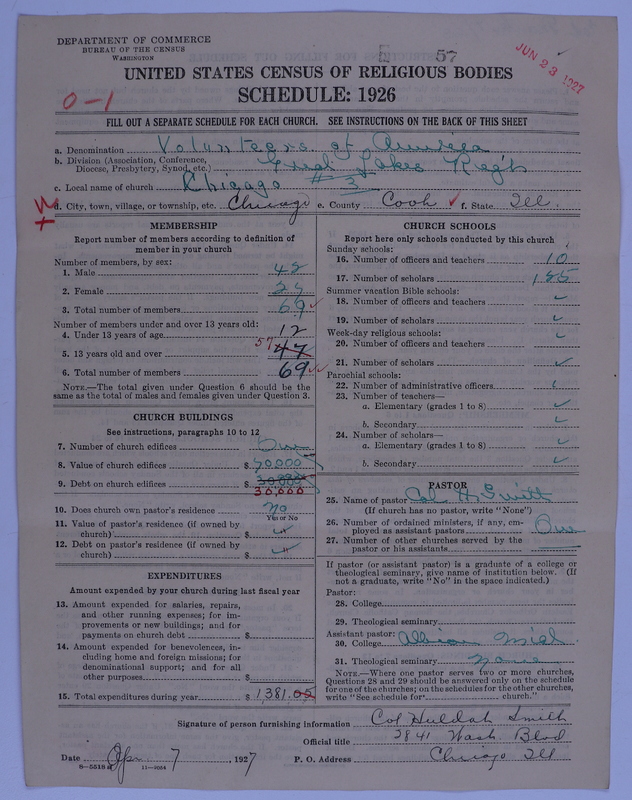 DEPARTMENT OF COMMERCE
BUREAU OF THE CENSUS
WASHINGTON
57
JUN 23 1927
UNITED STATES CENSUS OF RELIGIOUS BODIES
SCHEDULE: 1926
0-1
FILL OUT A SEPARATE SCHEDULE FOR EACH CHURCH. SEE INSTRUCTIONS ON THE BACK OF THIS SHEET
a. Denomination Volunteers of America
b. Division (Association, Conference, Diocese, Presbytery, Synod, etc.) Great Lakes Reg'n
c. Local name of church Chicago # 3
d. City, town, village, or township, etc. Chicago e. County Cook f. State Ill.
MEMBERSHIP
Report number of members according to definition of member in your church
Number of members, by sex:
1. Male
2. Female
3. Total number of members 69
Number of members under and over 13 years old:
4. Under 13 years of age 12
5. 13 years old and over 57 47
6. Total number of members 69
NOTE.—The total given under Question 6 should be the same as the total of males and females given under Question 3.
CHURCH BUILDINGS
See instructions, paragraphs 10 to 12
7. Number of church edifices One
8. Value of church edifices $ 70,000
9. Debt on church edifices $ 30,000
30,000
10. Does church own pastor's residence? no
Yes or No
11. Value of pastor's residence (if owned by church) $ "
12. Debt on pastor's residence (if owned by church) $ "
EXPENDITURES
Amount expended by your church during last fiscal year
13. Amount expended for salaries, repairs, and other running expenses; for improvements or new buildings; and for payments on church debt $
14. Amount expended for benevolences, including home and foreign missions; for denominational support; and for all other purposes $
15. Total expenditures during year $ 1381.05
CHURCH SCHOOLS
Report here only schools conducted by this church
Sunday schools:
16. Number of officers and teachers 10
17. Number of scholars 185
Summer vacation Bible schools:
18. Number of officers and teachers
19. Number of scholars
Week-day religious schools:
20. Number of officers and teachers
21. Number of scholars
Parochial schools:
22. Number of administrative officers
23. Number of teachers—
a. Elementary (grades 1 to 8)
b. Secondary
24. Number of scholars—
a. Elementary (grades 1 to 8)
b. Secondary
PASTOR
25. Name of pastor Col. H. Smith
(If church has no pastor, write "None")
26. Number of ordained ministers, if any, employed as assistant pastors One
27. Number of other churches served by the pastor or his assistants
If pastor (or assistant pastor) is a graduate of a college or theological seminary, give name of institution below. (If not a graduate, write "No" in the space indicated.)
Pastor:
28. College
29. Theological seminary
Assistant pastor:
30. College Albion Mich.
31. Theological seminary None
NOTE.—Where one pastor serves two or more churches, Questions 28 and 29 should be answered only on the schedule for one of the churches; on the schedules for the other churches, write "See schedule for church."
Signature of person furnishing information Col Huldah Smith
Official title 2841 Wash Blvd
Date Jan 7, 1927 P. O. Address Chicago Ill
8-5518 11-9084